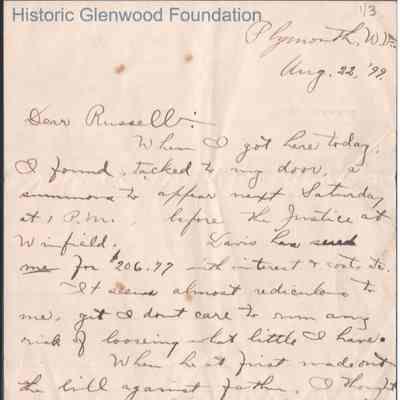 Historic Glenwood Foundation
1/3
Plymouth, W.Va.
Aug. 22, '99.
Dear Russell:
When I got here today,
I found, tacked to my door, a
summons to appear next Saturday
at 1 P.M., before the Justice at
Winfield. Davis has sued
me for $206.77 with interest & costs &c.
It seems almost rediculous to
me, yet I dont care to run any
risk of looseing what little I have.
When he at first made out
the bill against father, I thought